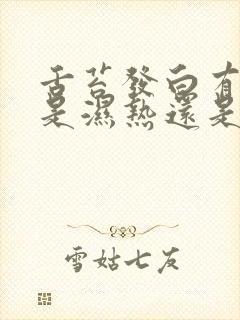 舌苔發白有
是濕熱還是
雪姑七友